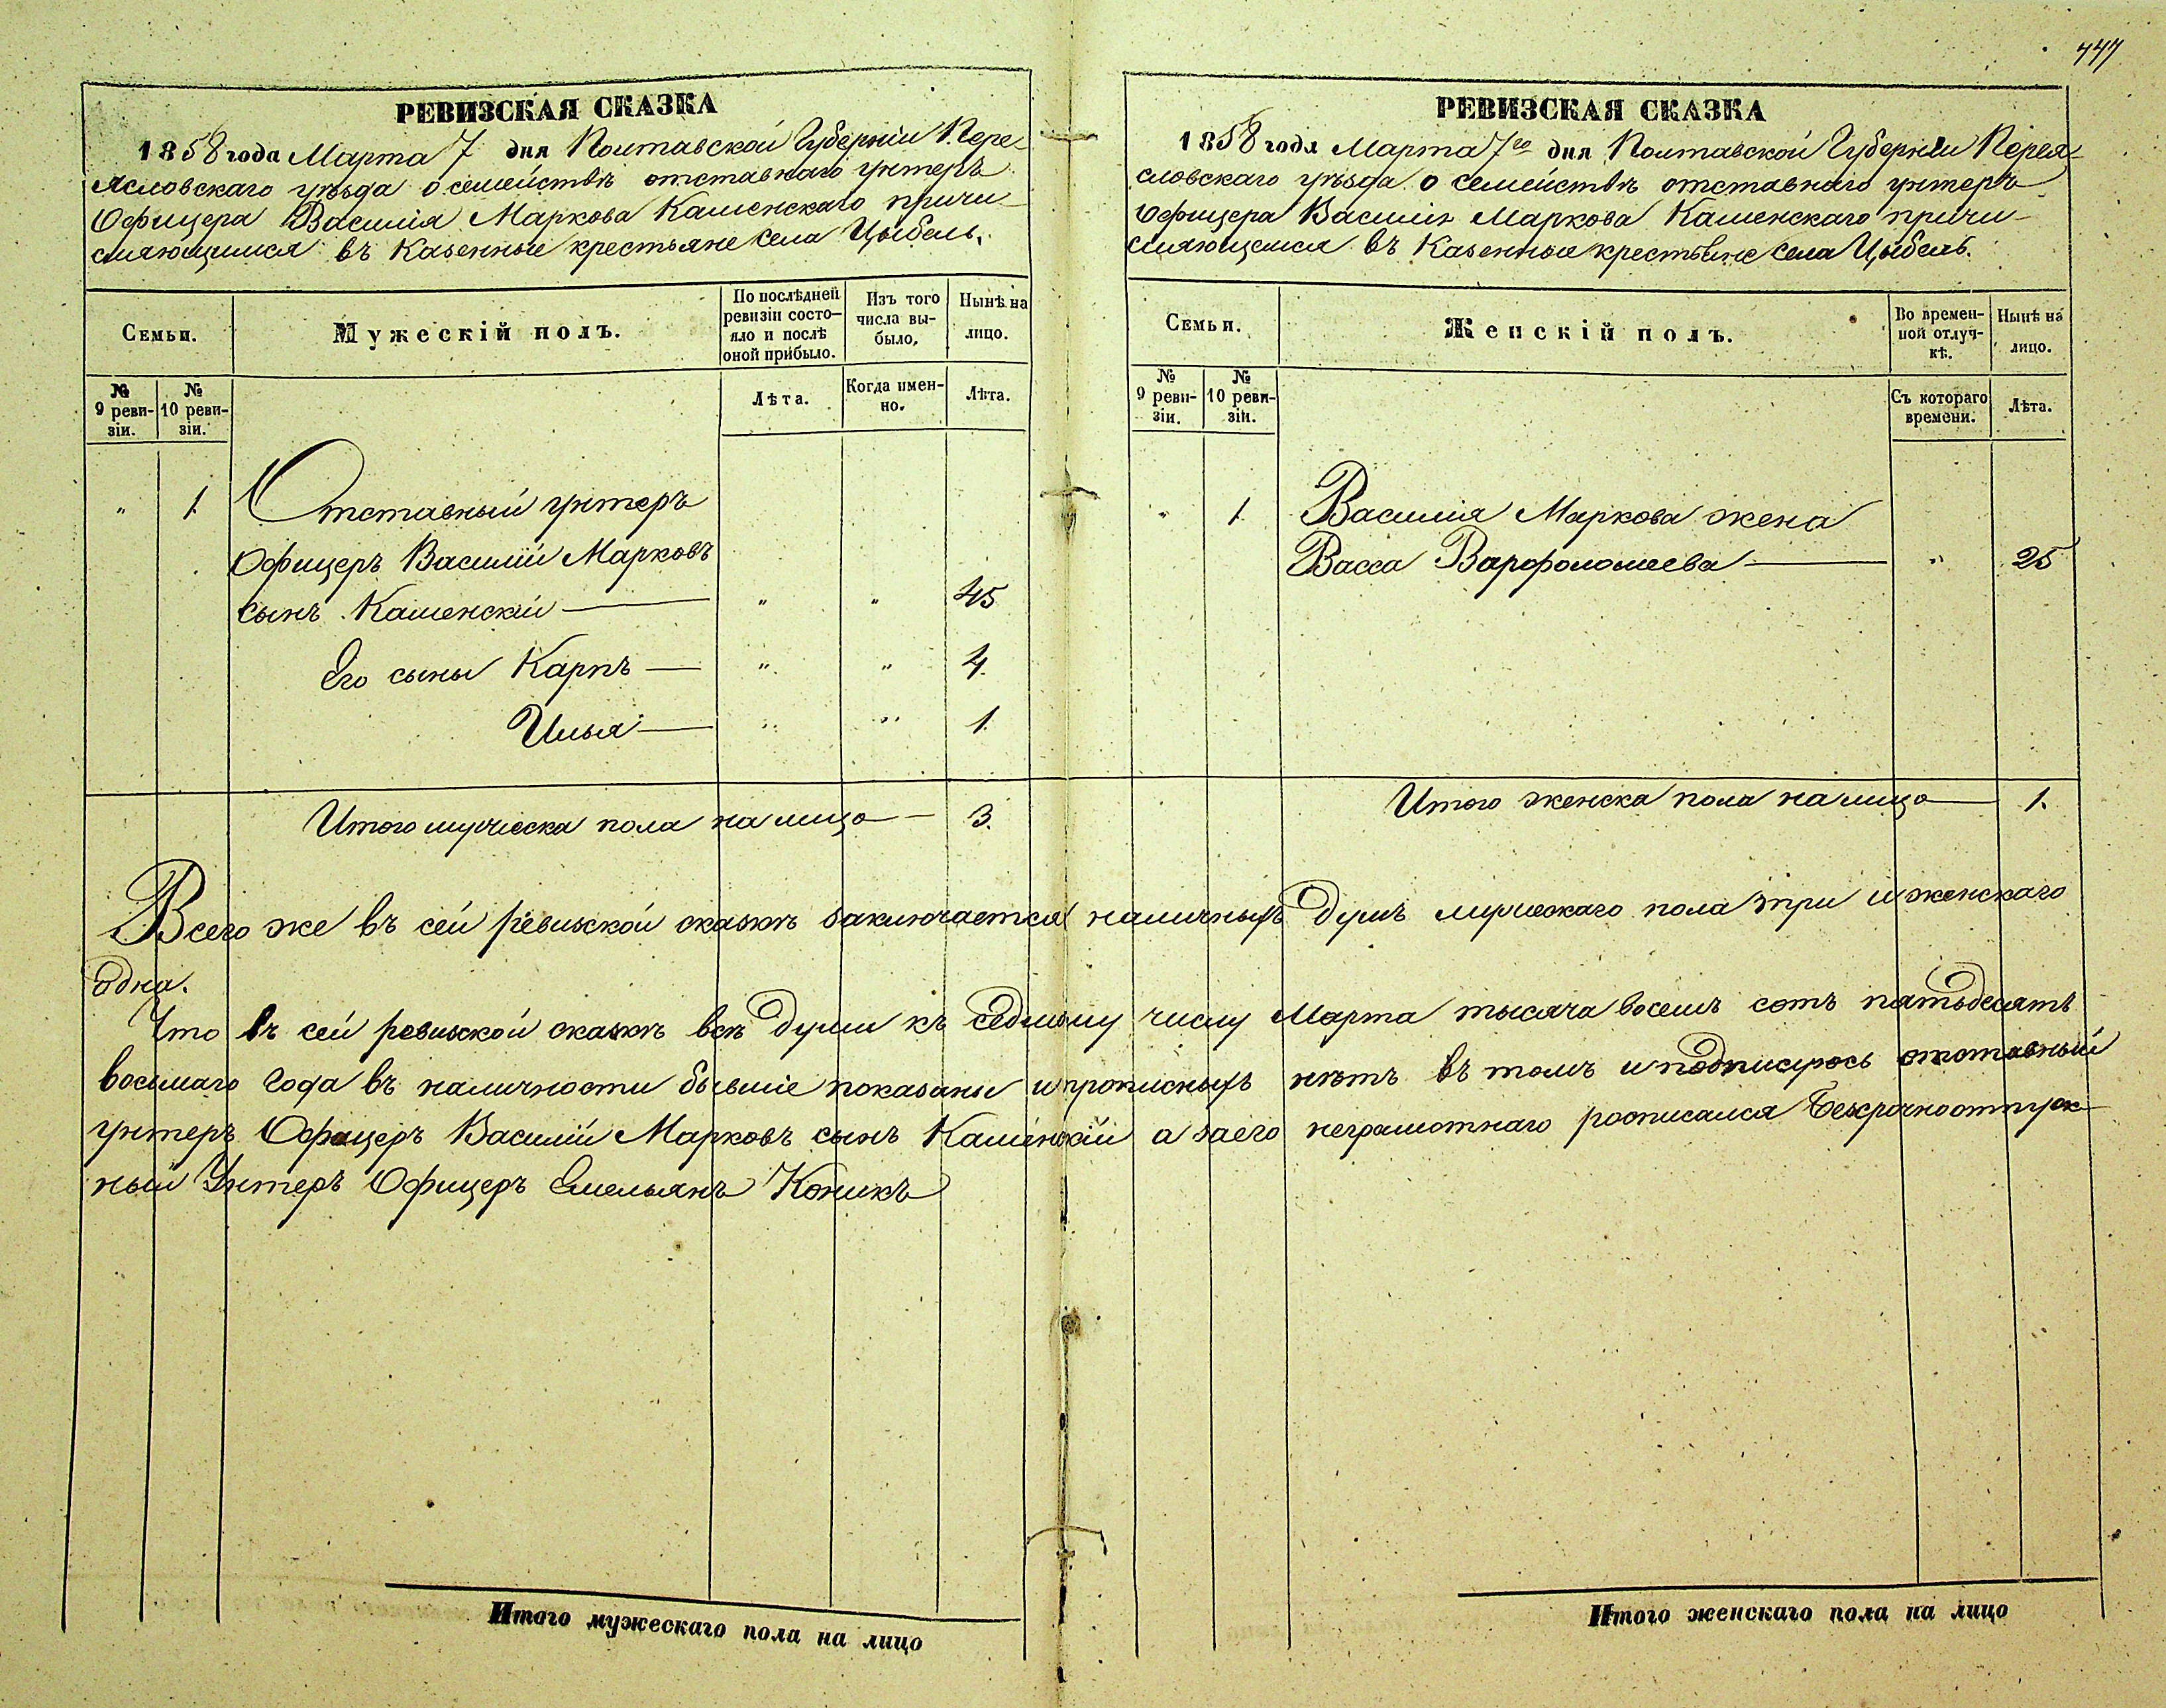 447
РЕВИЗСКАЯ СКАЗКА
1858 года Марта 7 дня Полтавской Губерніи Пере-
ясловскаго уѣзда о семействѣ отставнаго унтеръ
Офицера Василія Маркова Каменскаго причи-
сляющимся въ Казенные крестьяне села Цыбель.
Семьи.
Мужескій полъ.
По послѣдней
ревизіи состо-
яло и послѣ
оной прибыло.
Изъ того
числа вы-
было,
Нынѣ на
лицо.
№
9 реви-
зіи.
№
10 реви-
зіи.
Лѣта.
Когда имен-
но.
Лѣта.
" 1. Отставный унтеръ
Офицеръ Василій Марковъ
сынъ Каменскій — " " 45
Его сыны Карпъ — " " 4.
Илья — " " 1.
Итого мужеска пола на лицо — 3.
РЕВИЗСКАЯ СКАЗКА
1858 года Марта 7го дня Полтавской Губерніи Перея-
словскаго уѣзда о семействѣ отставнаго унтеръ
Офицера Василія Маркова Каменскаго причи-
сляющемся въ Казенные крестьяне села Цыбель.
Семьи.
Женскій полъ.
Во времен-
ной отлуч-
кѣ.
Нынѣ на
лицо.
№
9 реви-
зіи.
№
10 реви-
зіи.
Съ котораго
времени.
Лѣта.
" 1. Василія Маркова жена
Васса Варфоломеева — " 25
Итого женска пола на лицо — 1.
Всего же въ сей ревизской сказкѣ заключается наличныхъ душъ мужескаго пола три и женскаго
одна.
Что въ сей ревизской сказкѣ всѣ души къ седьмому числу Марта тысяча восемь сотъ пятьдесятъ
восьмаго года въ наличности бывшіе показаны и прописныхъ нѣтъ въ томъ и подписуюсь отставный
унтеръ Офицеръ Василій Марковъ сынъ Каменскій а за его неграмотнаго росписался Безсрочноотпуск-
ный Унтеръ Офицеръ Емельянъ Коникъ
Итого мужескаго пола на лицо
Итого женскаго пола на лицо